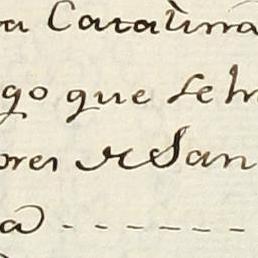 a Catalina
go que se h
ores de San
a ------